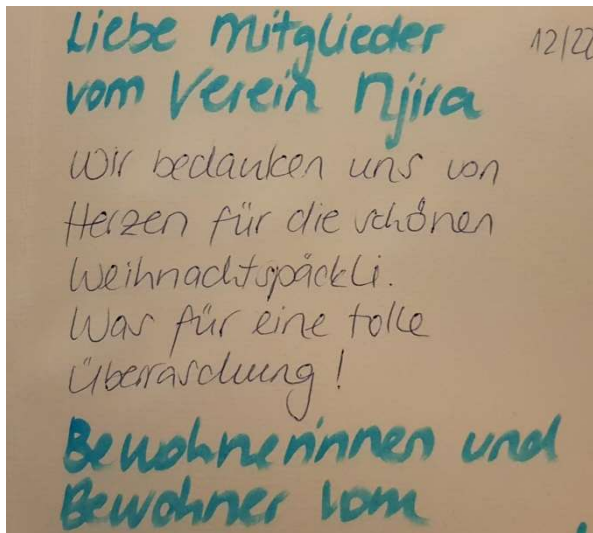 Liebe Mitglieder 12/22
vom Verein Njira
Wir bedanken uns von
Herzen für die schönen
Weihnachtspäckli.
Was für eine tolle
Überraschung!
Bewohnerinnen und
Bewohner vom